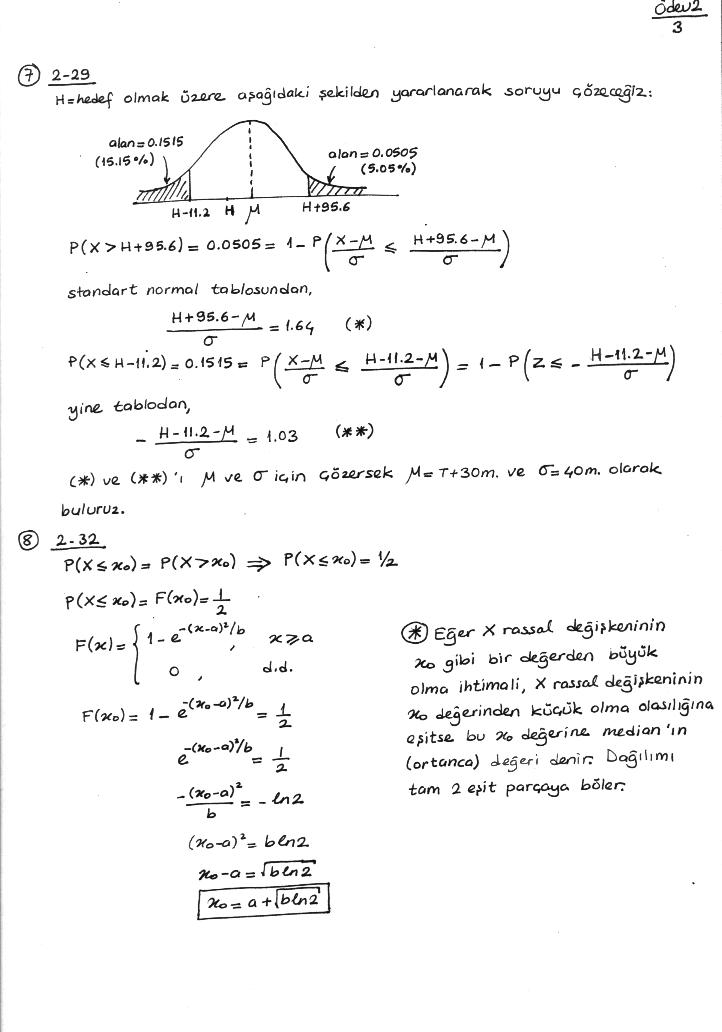 Ödev2
3
⑦ 2-29
H=hedef olmak üzere aşağıdaki şekilden yararlanarak soruyu çözeceğiz:
alan=0.1515
(15.15%)
alan=0.0505
(5.05%)
H-11.2 H M H+95.6
P(X>H+95.6)=0.0505=1-P((X-M)/σ ≤ (H+95.6-M)/σ)
standart normal tablosundan,
(H+95.6-M)/σ = 1.64 (*)
P(X≤H-11.2)=0.1515=P((X-M)/σ ≤ (H-11.2-M)/σ)=1-P(Z≤-(H-11.2-M)/σ)
yine tablodan,
-(H-11.2-M)/σ = 1.03 (**)
(*) ve (**)'ı M ve σ için çözersek M=T+30m. ve σ=40m. olarak
buluruz.
⑧ 2-32
P(X≤x₀)=P(X>x₀) ⇒ P(X≤x₀)=1/2
P(X≤x₀)=F(x₀)=1/2
F(x)={ 1-e^(-(x-a)²/b), x≥a
0, d.d.
F(x₀)=1-e^(-(x₀-a)²/b)=1/2
e^(-(x₀-a)²/b)=1/2
-(x₀-a)²/b=-ln2
(x₀-a)²=bln2
x₀-a=√(bln2)
x₀=a+√(bln2)
(*) Eğer X rassal değişkeninin
x₀ gibi bir değerden büyük
olma ihtimali, X rassal değişkeninin
x₀ değerinden küçük olma olasılığına
eşitse bu x₀ değerine median'ın
(ortanca) değeri denir. Dağılımı
tam 2 eşit parçaya böler.